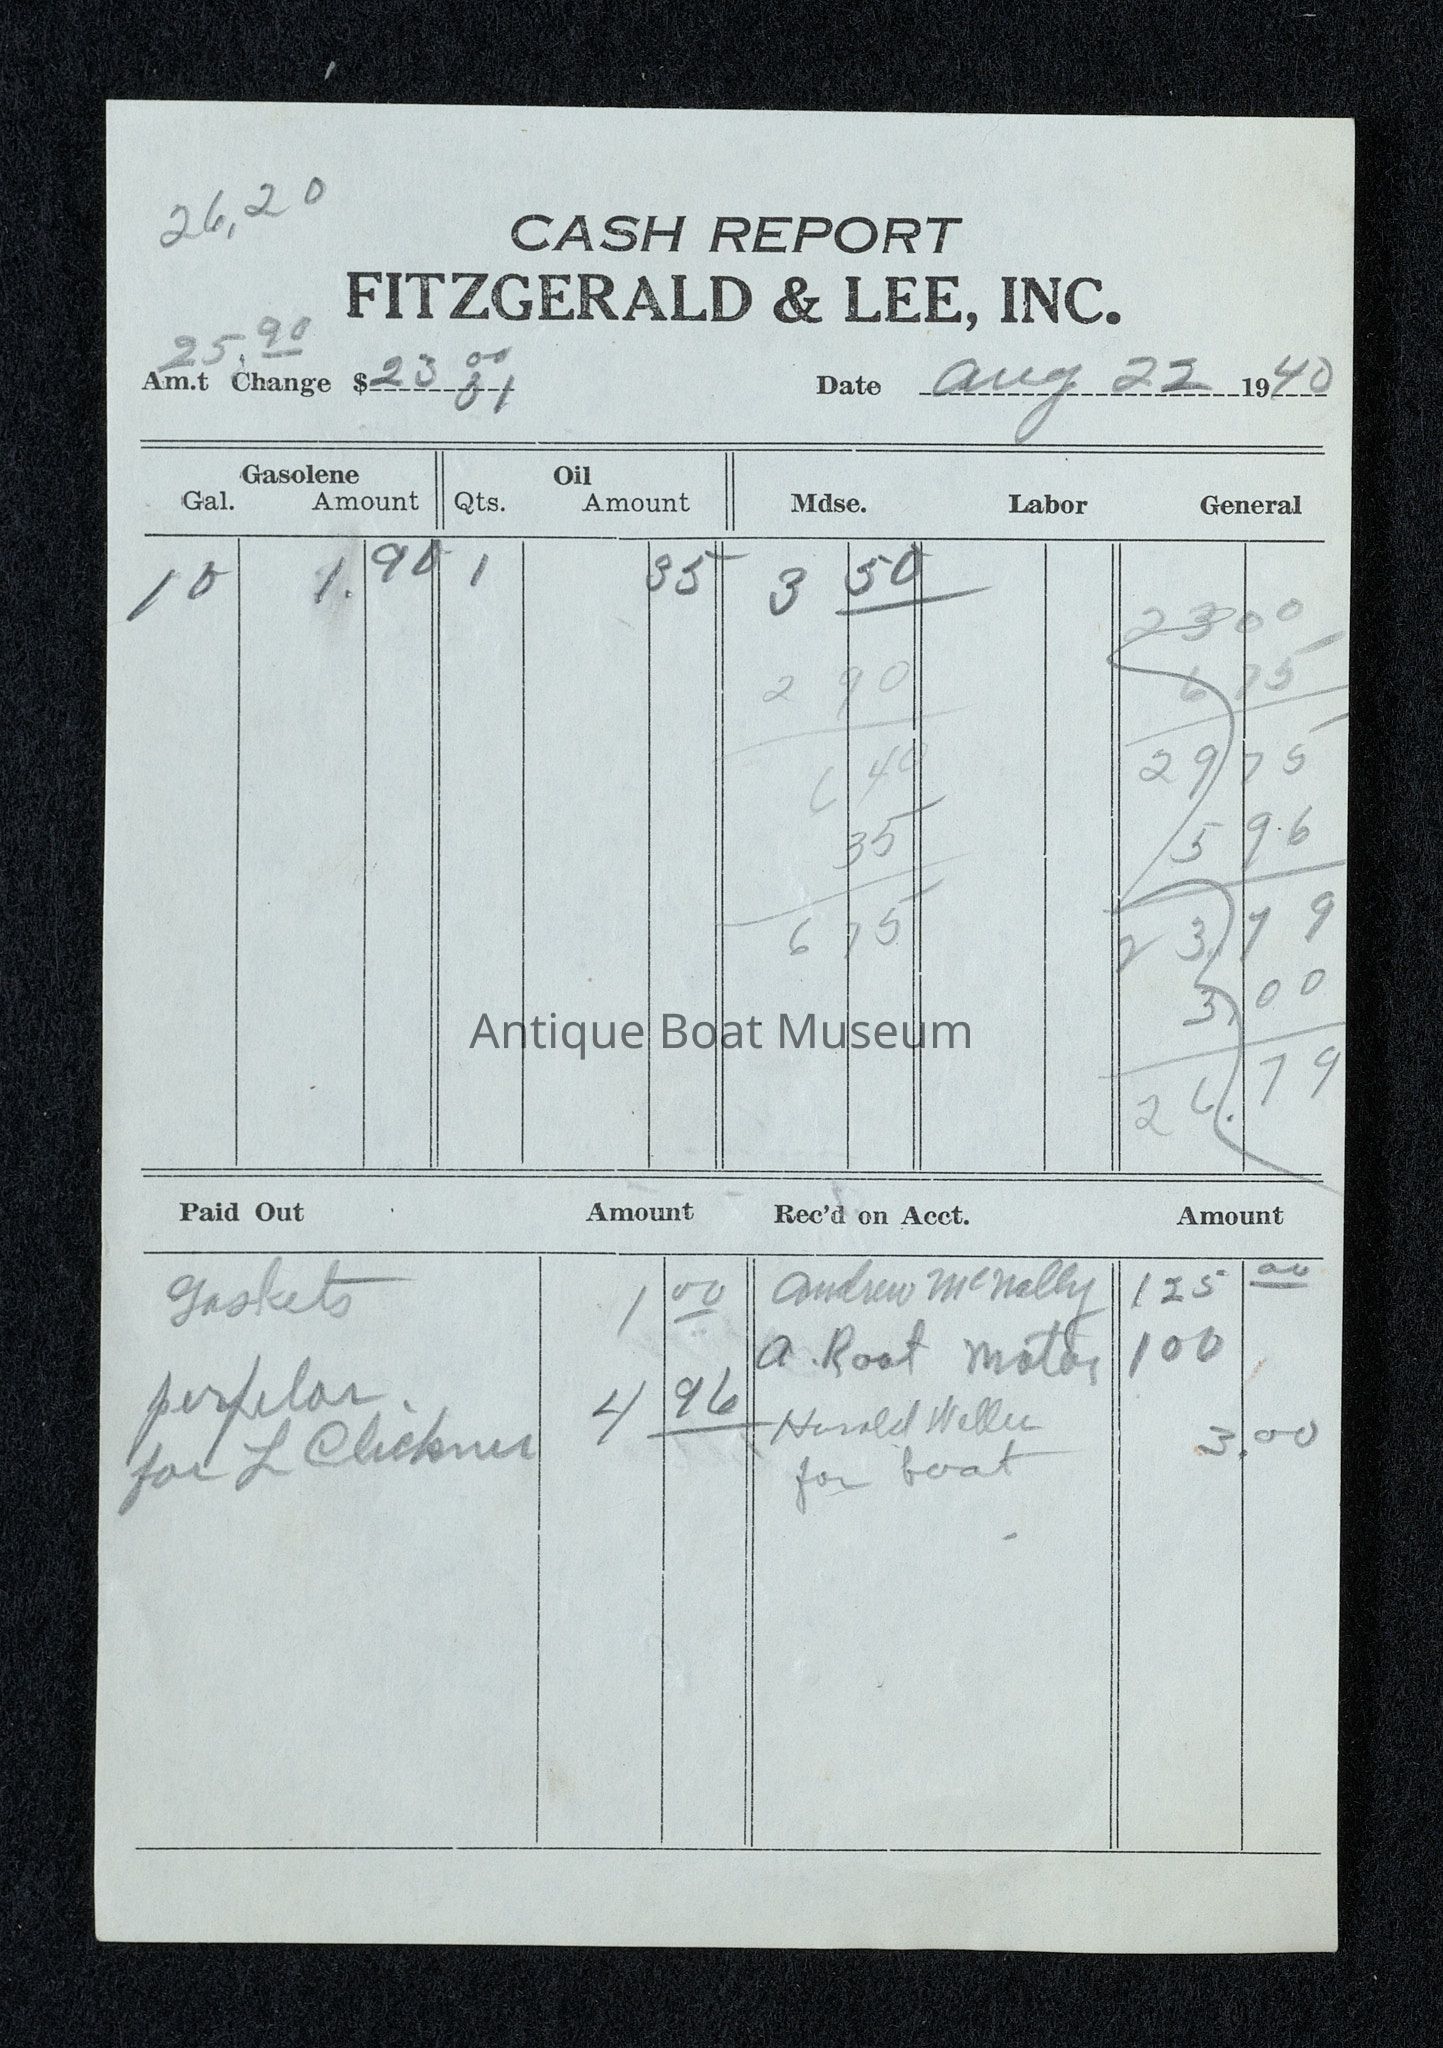 26,20
CASH REPORT
FITZGERALD & LEE, INC.
25.90
Am.t Change $ 23 00
31
Date Aug 22 1940
Gasolene Oil
Gal. Amount Qts. Amount Mdse. Labor General
10 1.90 1 35 3 50
23 00
2 90 6 75
6 40 29 75
35 5 96
6 75 23 79
3.00
Antique Boat Museum
26.79
Paid Out Amount Rec'd on Acct. Amount
Gaskets 1 00 Andrew McNally 125 00
A. Root Motor 100
4 96 Harold
for L Clickner for boat 3.00